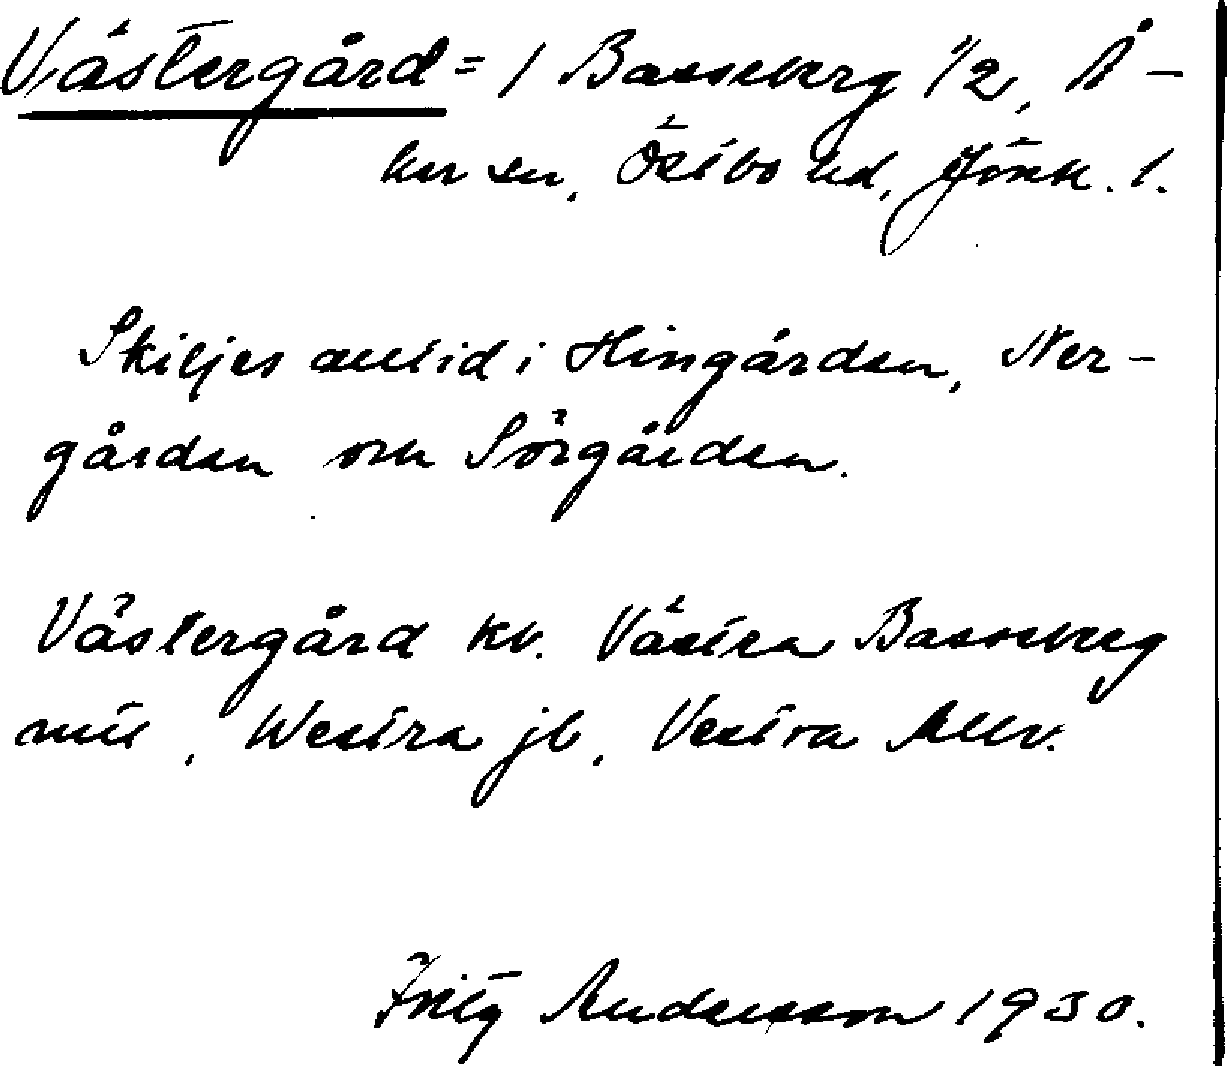 Västergård = / Basseberg 1/2, Å-
ker sn, Östbo hd, Jönk. l.
Skiljes alltid i Hingården, Ner-
gården och Sörgården.
Västergård kv. Västra Basseberg
mtl, Westra jb, Vestra Allv.
Fritz Andersson 1930.